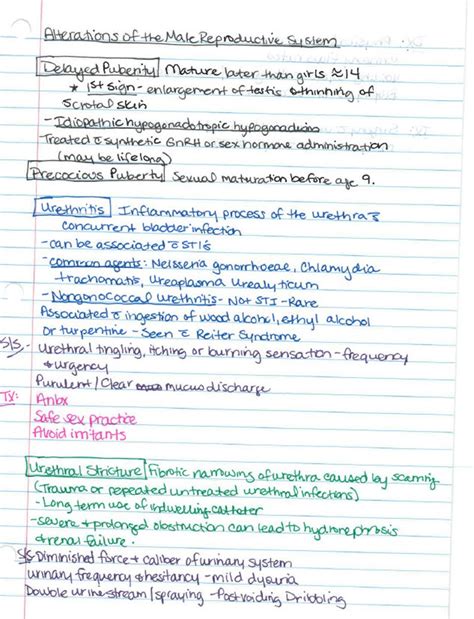 Alterations of the Male Reproductive System
Delayed Puberty Mature later than girls ≈14
* 1st sign - enlargement of testic & thinning of
scrotal skin
- Idiopathic hypogonadotropic hypogonadism
Treated c̄ synthetic GnRH or sex hormone administration
(may be lifelong)
Precocious Puberty Sexual maturation before age 9.
Urethritis Inflammatory process of the urethra c̄
concurrent bladder infection
- can be associated c̄ STI's
- common agents: Neisseria gonorrhoeae, Chlamydia
trachomatis, Ureaplasma urealyticum
- Nongonococcal urethritis - NOT STI - Rare
Associated c̄ ingestion of wood alcohol, ethyl alcohol
or turpentine - Seen c̄ Reiter Syndrome
S/S - Urethral tingling, itching or burning sensation - frequency
& urgency
Purulent / Clear mucus discharge
TX: Anbx
Safe sex practice
Avoid irritants
Urethral Stricture Fibrotic narrowing of urethra caused by scarring
(Trauma or repeated untreated urethral infections)
- Long term use of indwelling catheter
- severe & prolonged obstruction can lead to hydronephrosis
& renal failure.
S/S Diminished force & caliber of urinary system
urinary frequency & hesitancy - mild dysuria
Double urine stream / spraying - Postvoiding Dribbling